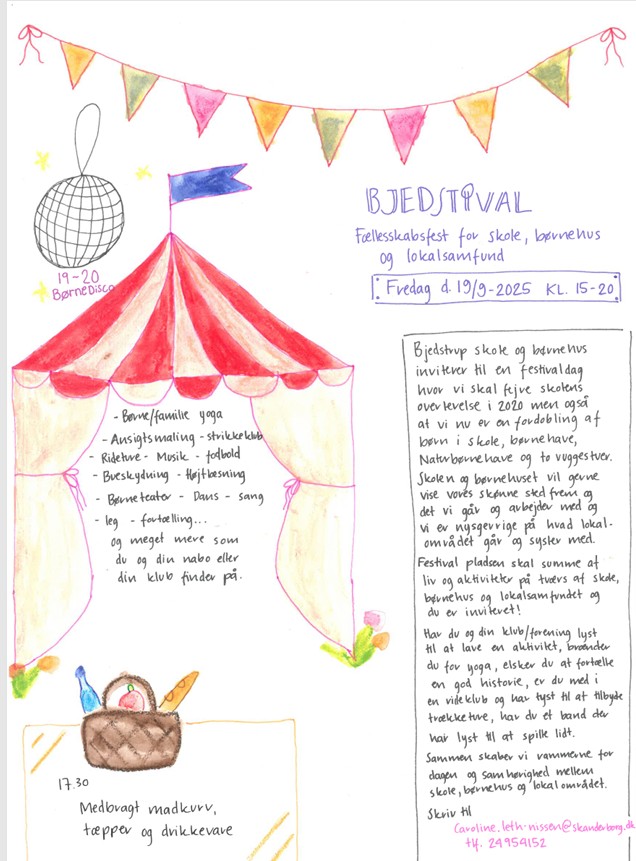 BJEDSTIVAL
Fællesskabsfest for skole, børnehus
og lokalsamfund
Fredag d. 19/9-2025 KL. 15-20
19-20
BørneDisco
- Børne/familie yoga
- Ansigtsmaling - strikkeklub
- Rideture - Musik - fodbold
- Bueskydning - Højtlæsning
- Børneteater - Dans - sang
- leg - fortælling...
og meget mere som
du og din nabo eller
din klub finder på.
17.30
Medbragt madkurv,
tæpper og drikkevare
Bjedstrup skole og børnehus
inviterer til en festivaldag
hvor vi skal fejre skolens
overlevelse i 2020 men også
at vi nu er en fordobling af
børn i skole, børnehave,
Naturbørnehave og to vuggestuer.
Skolen og børnehuset vil gerne
vise vores skønne sted frem og
det vi går og arbejder med og
vi er nysgerrige på hvad lokal-
området går og sysler med.
Festival pladsen skal summe af
liv og aktiviteter på tværs af skole,
børnehus og lokalsamfundet og
du er inviteret!
Har du og din klub/forening lyst
til at lave en aktivitet, brænder
du for yoga, elsker du at fortælle
en god historie, er du med i
en rideklub og har lyst til at tilbyde
trækketure, har du et band der
har lyst til at spille lidt.
Sammen skaber vi rammerne for
dagen og samhørighed mellem
skole, børnehus og lokalområdet.
Skriv til
Caroline.leth-nissen@skanderborg.dk
tlf. 24954152